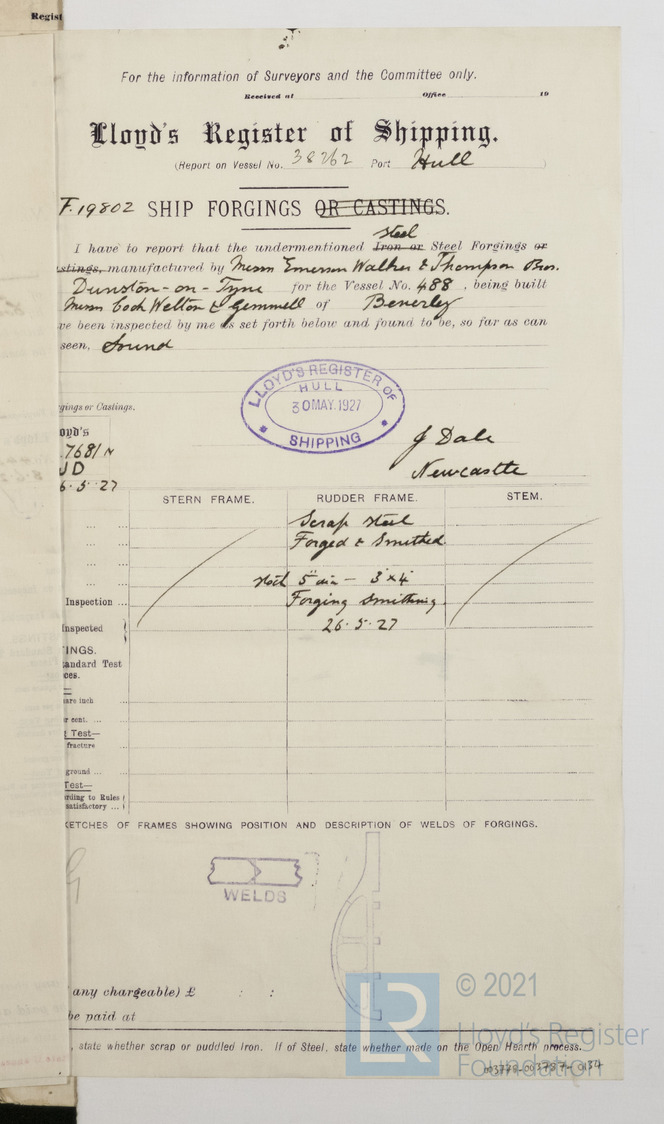 Regist
For the information of Surveyors and the Committee only.
Received at Office 19
Lloyd's Register of Shipping.
(Report on Vessel No. 38262 Port Hull )
F.19802 SHIP FORGINGS OR CASTINGS.
steel
I have to report that the undermentioned Iron or Steel Forgings or
stings, manufactured by Messrs Emerson Walker & Thompson Bros.
Dunston-on-Tyne for the Vessel No. 488, being built
Messrs Cook Welton & Gemmell of Beverley
ve been inspected by me as set forth below and found to be, so far as can
seen, Sound
LLOYD'S REGISTER OF
HULL
30 MAY. 1927
SHIPPING
gings or Castings.
oyd's
7681 N
JD
6.5.27
J Dale
Newcastle
STERN FRAME. RUDDER FRAME. STEM.
Scrap steel
Forged & Smithed
stock 5" dia - 3 x 4
Inspection ... Forging Smithing
Inspected 26.5.27
INGS.
tandard Test
ces.
are inch
r cent. ...
Test—
fracture
ground ...
Test—
rding to Rules
satisfactory ...
KETCHES OF FRAMES SHOWING POSITION AND DESCRIPTION OF WELDS OF FORGINGS.
WELDS
any chargeable) £ : :
be paid at
, state whether scrap or puddled Iron. If of Steel, state whether made on the Open Hearth process.
LR
© 2021
Lloyd's Register
Foundation
003779-003787-0134